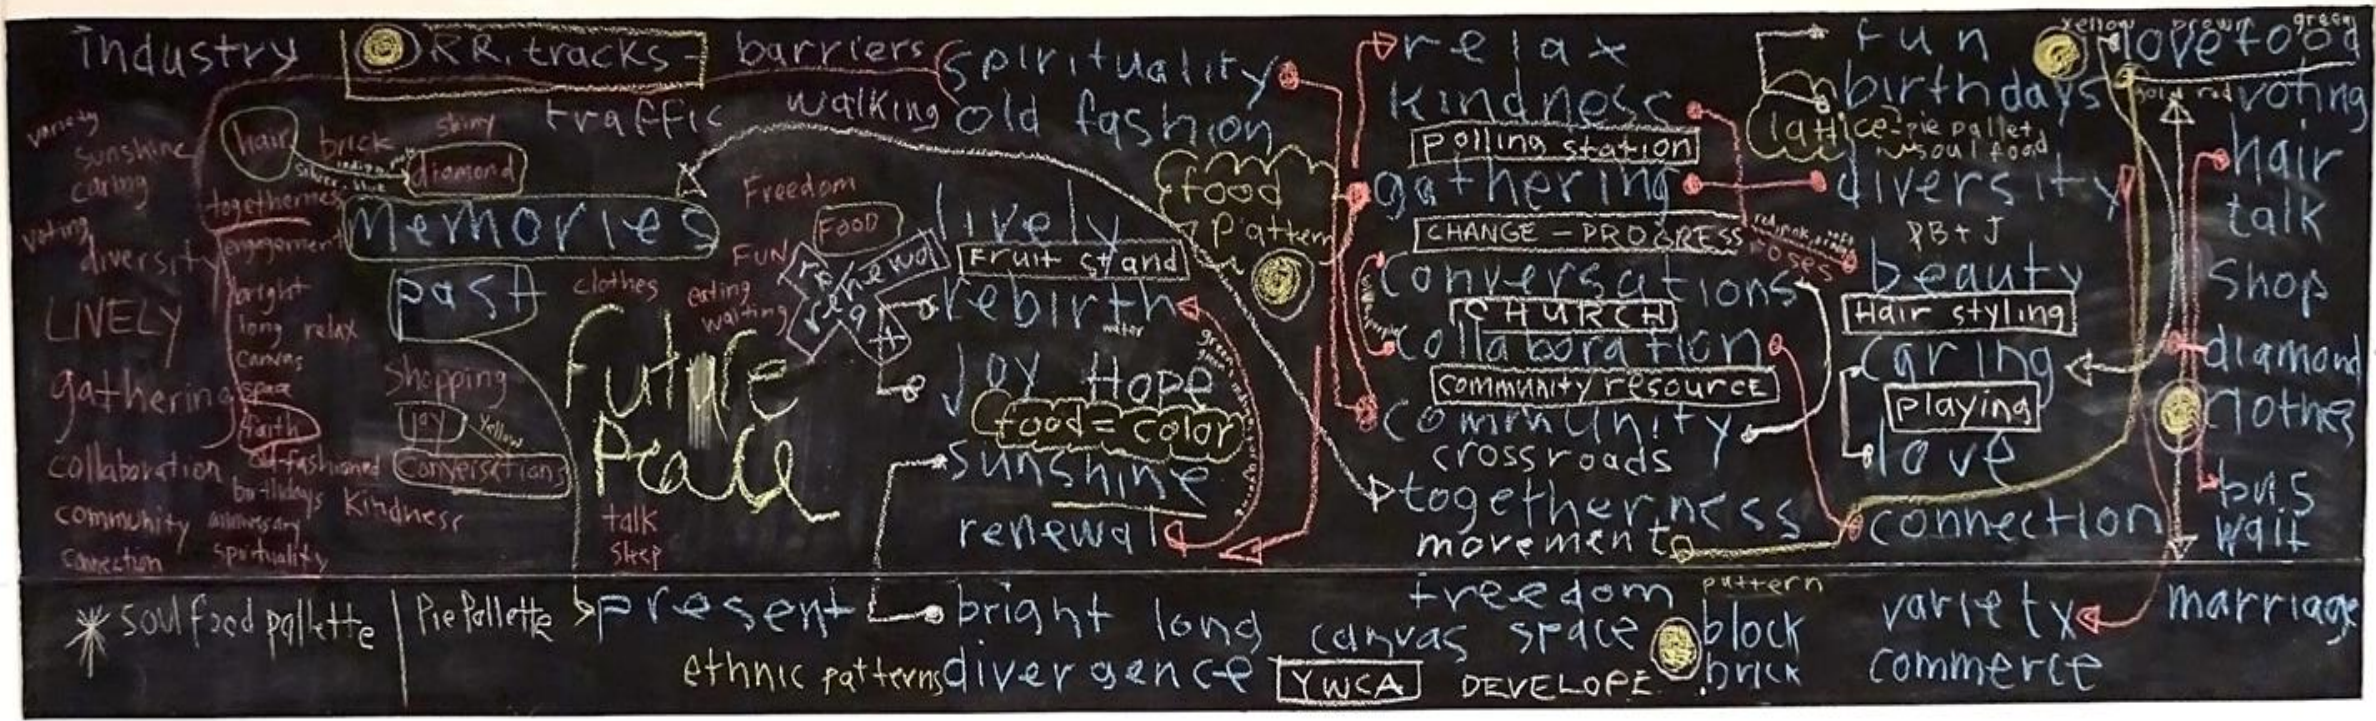 industry
RR. tracks -
barriers
traffic
walking
variety
sunshine
caring
voting
diversity
LIVELY
gathering
collaboration
community
connection
hair
brick
shiny
diamond
togetherness
engagement
bright
long
relax
canvas
space
faith
old-fashioned
birthdays
anniversary
spirituality
memories
past
shopping
joy
yellow
conversations
kindness
Freedom
FOOD
FUN
clothes
eating
waiting
talk
sleep
Future
Peace
spirituality
old fashion
lively
Fruit stand
rebirth
water
renewal
Joy Hope
food = color
sunshine
renewal
food
pattern
relax
kindness
Polling station
gathering
CHANGE - PROGRESS
conversations
CHURCH
collaboration
community resource
community
crossroads
togetherness
movement
fun
birthdays
lattice - pie pallet
soul food
diversity
PB + J
roses
beauty
Hair styling
caring
playing
love
connection
yellow
brown
green
love food
gold red
voting
hair
talk
shop
diamond
clothes
bus
wait
soul food pallette
Pie Pallette
present
bright long
freedom
pattern
canvas space
block
brick
variety
marriage
ethnic patterns
divergence
YWCA
DEVELOPE
commerce